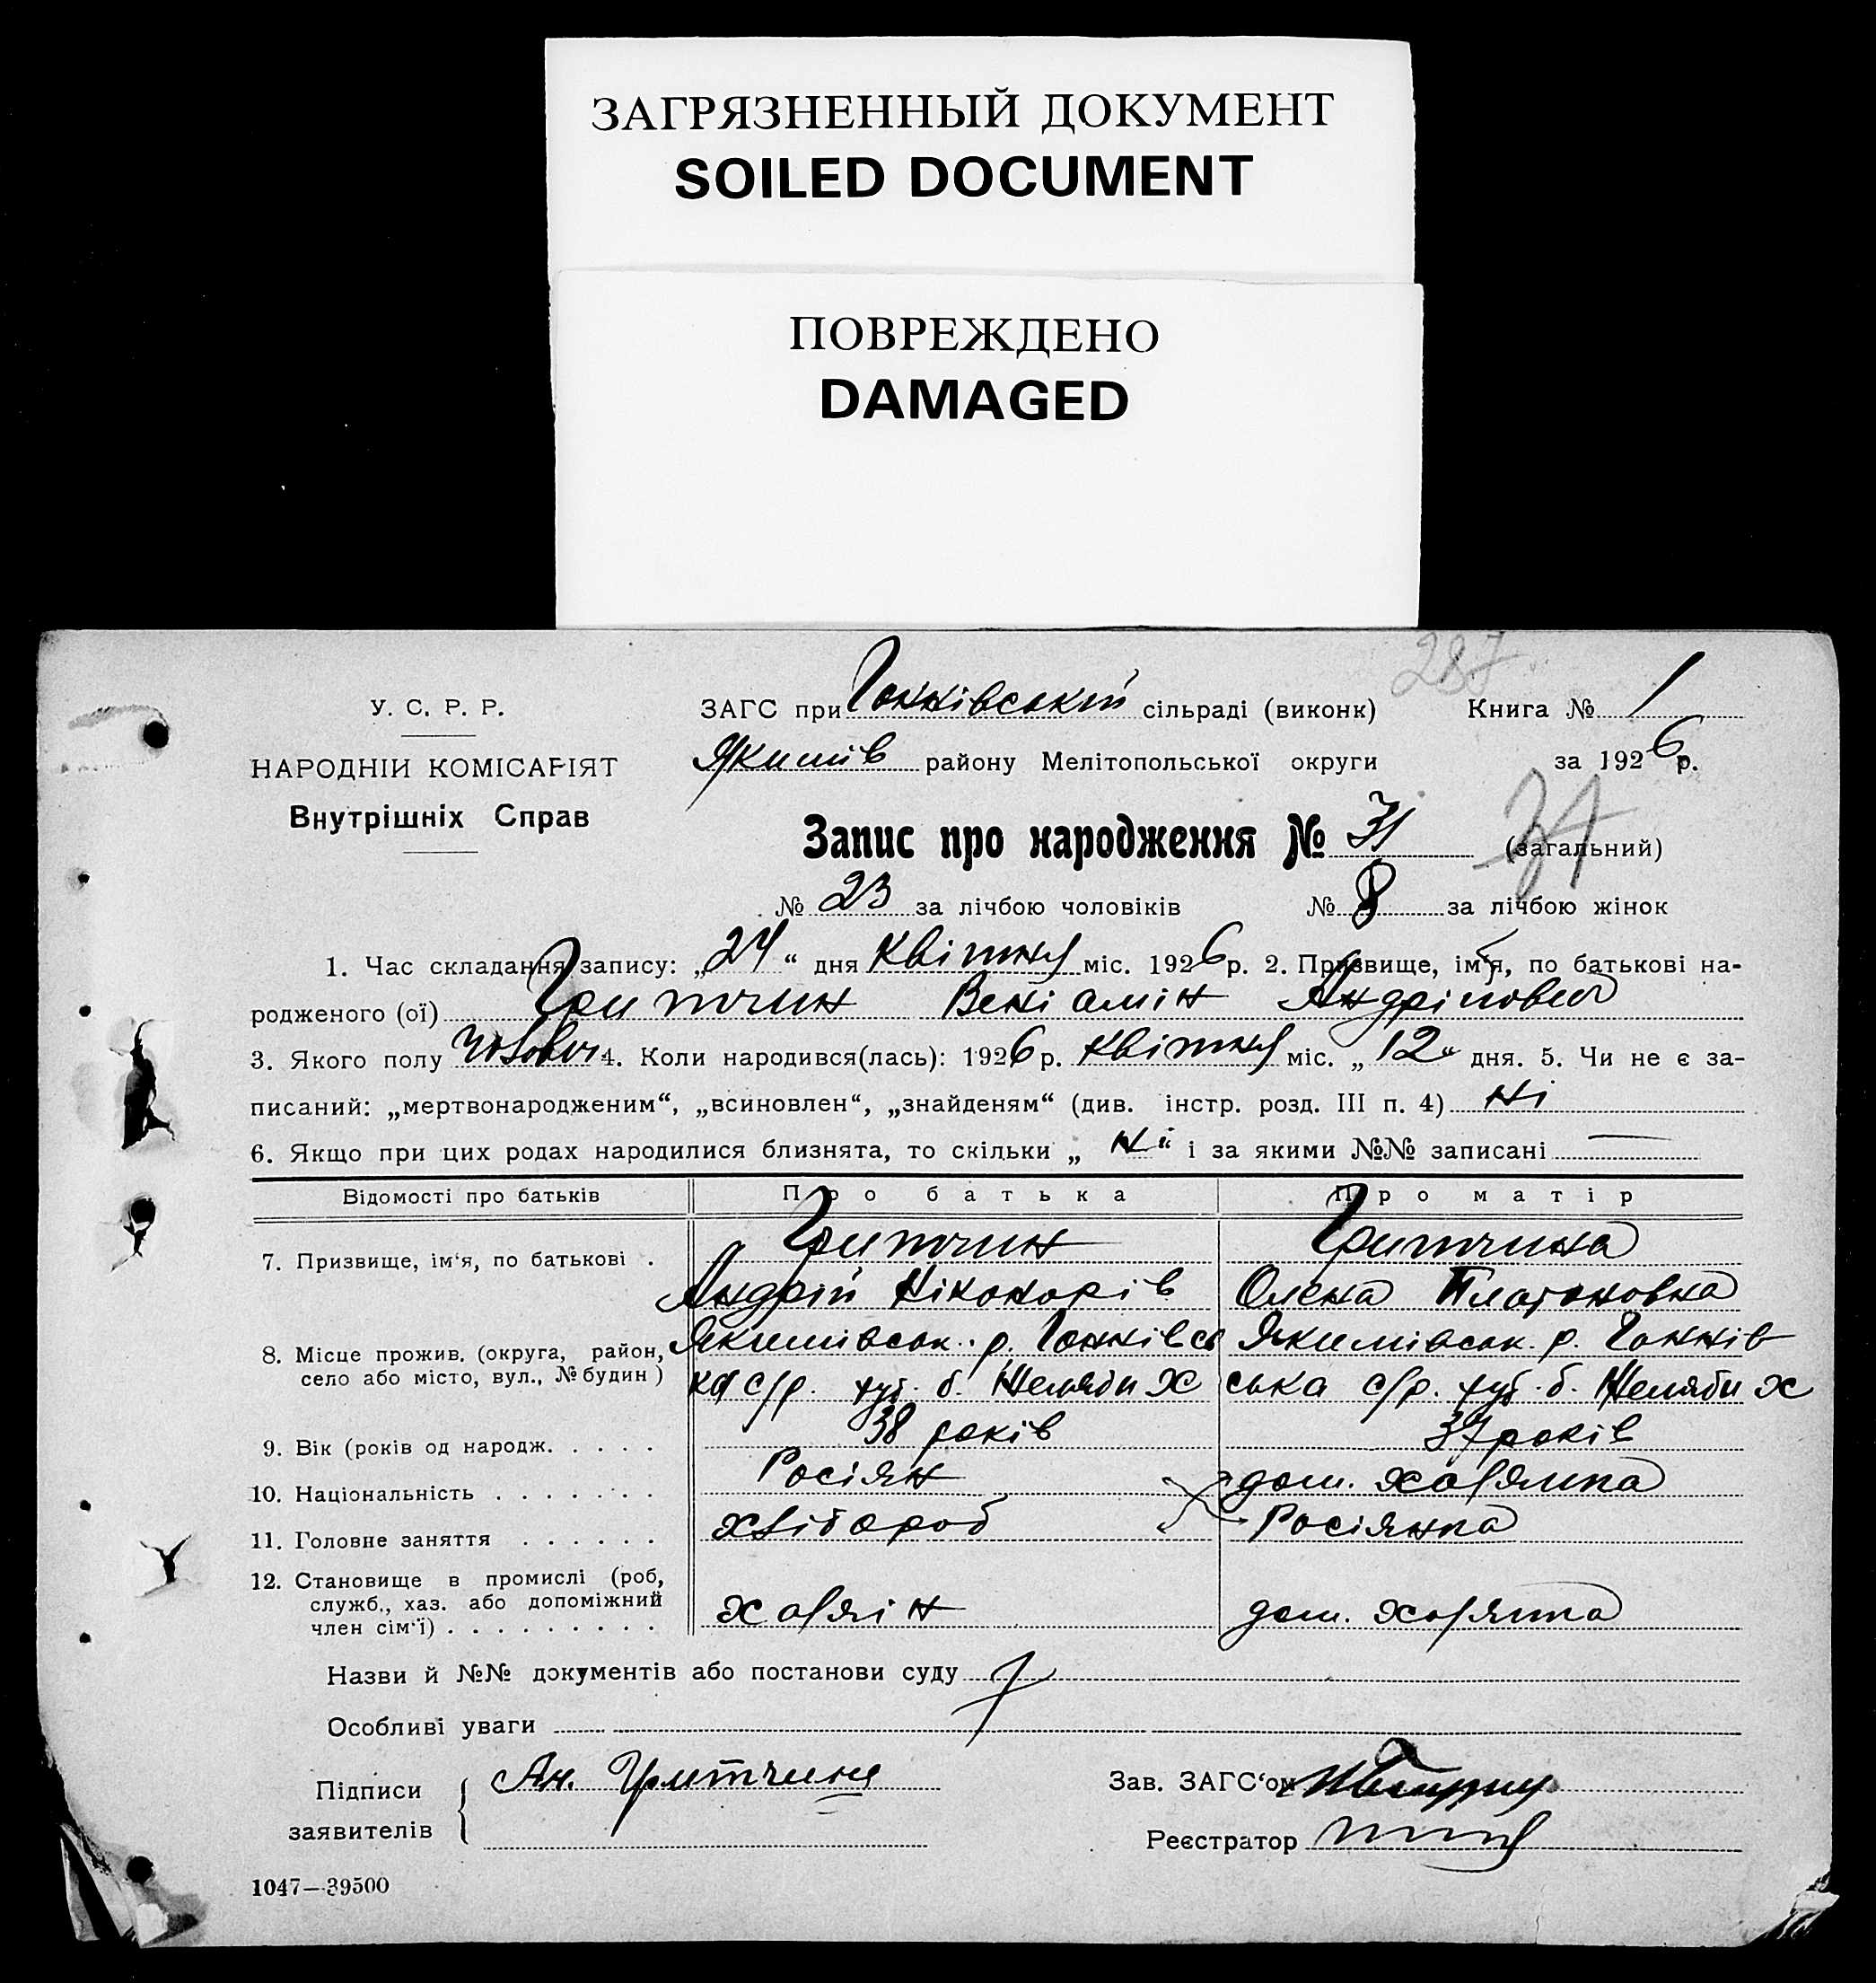 ЗАГРЯЗНЕННЫЙ ДОКУМЕНТ
SOILED DOCUMENT
ПОВРЕЖДЕНО
DAMAGED
287
У. С. Р. Р.
НАРОДНІЙ КОМІСАРІЯТ
Внутрішніх Справ
ЗАГС при Ганнівській сільраді (виконк) Книга № 1
Якимів району Мелітопольської округи за 1926 р.
Запис про народження № 31 (загальний)
№ 23 за лічбою чоловіків № 8 за лічбою жінок
1. Час складання запису: „24“ дня квітня міс. 1926 р. 2. Призвище, ім'я, по батькові на-
родженого (ої) Гритчин Веніамін Андрійович
3. Якого полу чолов 4. Коли народився(лась): 1926 р. квітня міс. „12“ дня. 5. Чи не є за-
писаний: „мертвонародженим“, „всиновлен“, „знайденям“ (див. інстр. розд. III п. 4) ні
6. Якщо при цих родах народилися близнята, то скільки „ні“ і за якими №№ записані —
Відомості про батьків Про батька Про матір
7. Призвище, ім‘я, по батькові . Гритчин Гритчина
Андрій Ніконорів Олена Платоновна
8. Місце прожив. (округа, район, Якимівськ. р. Ганнівсь Якимівськ. р. Ганнів
село або місто, вул., № будин) ка с/р. хут. б. ська с/р. хут. б.
9. Вік (років од народж. . . . . 38 років 37 років
10. Національність . . . . . . . Росіян дом. хазяйка
11. Головне заняття . . . . . . хлібороб Росіянка
12. Становище в промислі (роб, служб., хаз. або допоміжний член сім‘ї) . . . . . . . . . хазяїн дом. хазяйка
Назви й №№ документів або постанови суду
Особливі уваги
Підписи заявителів Ан. Гритчин Зав. ЗАГС‘ом
Реєстратор
1047—39500